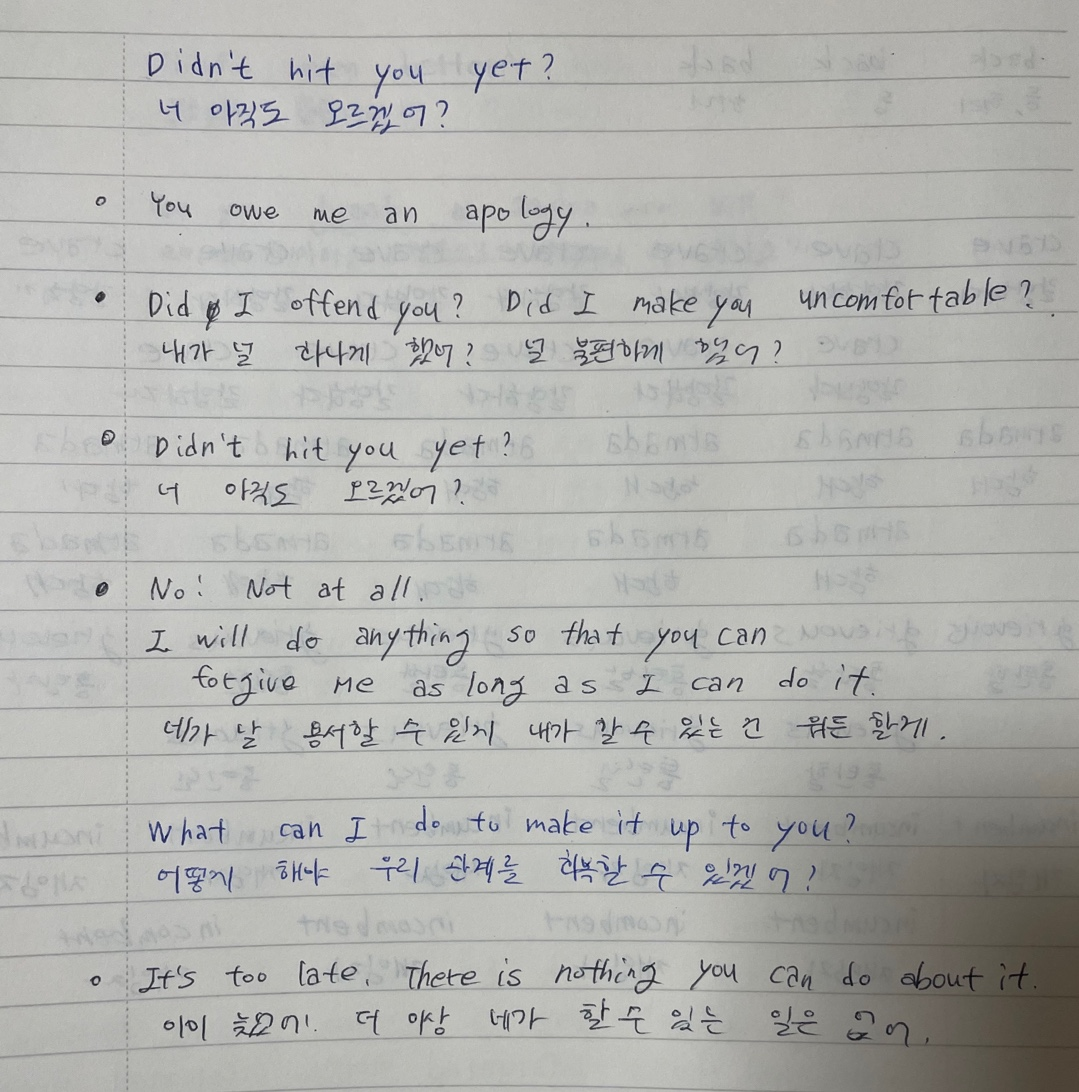 Didn't hit you yet?
너 아직도 모르겠어?
You owe me an apology.
Did I offend you? Did I make you uncomfortable?
내가 널 화나게 했어? 널 불편하게 했어?
Didn't hit you yet?
너 아직도 모르겠어?
No! Not at all.
I will do anything so that you can
forgive me as long as I can do it.
네가 날 용서할 수 있게 내가 할 수 있는 건 뭐든 할게.
What can I do to make it up to you?
어떻게 해야 우리 관계를 회복할 수 있겠어?
It's too late. There is nothing you can do about it.
이미 늦었어! 더 이상 네가 할 수 있는 일은 없어.